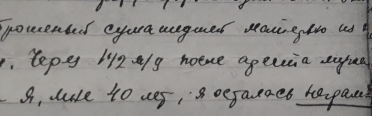 брошеный сумашедшей матерью из
Через 1 1/2 м/д после ареста мужа
Я, мне 40 лет, я осталась